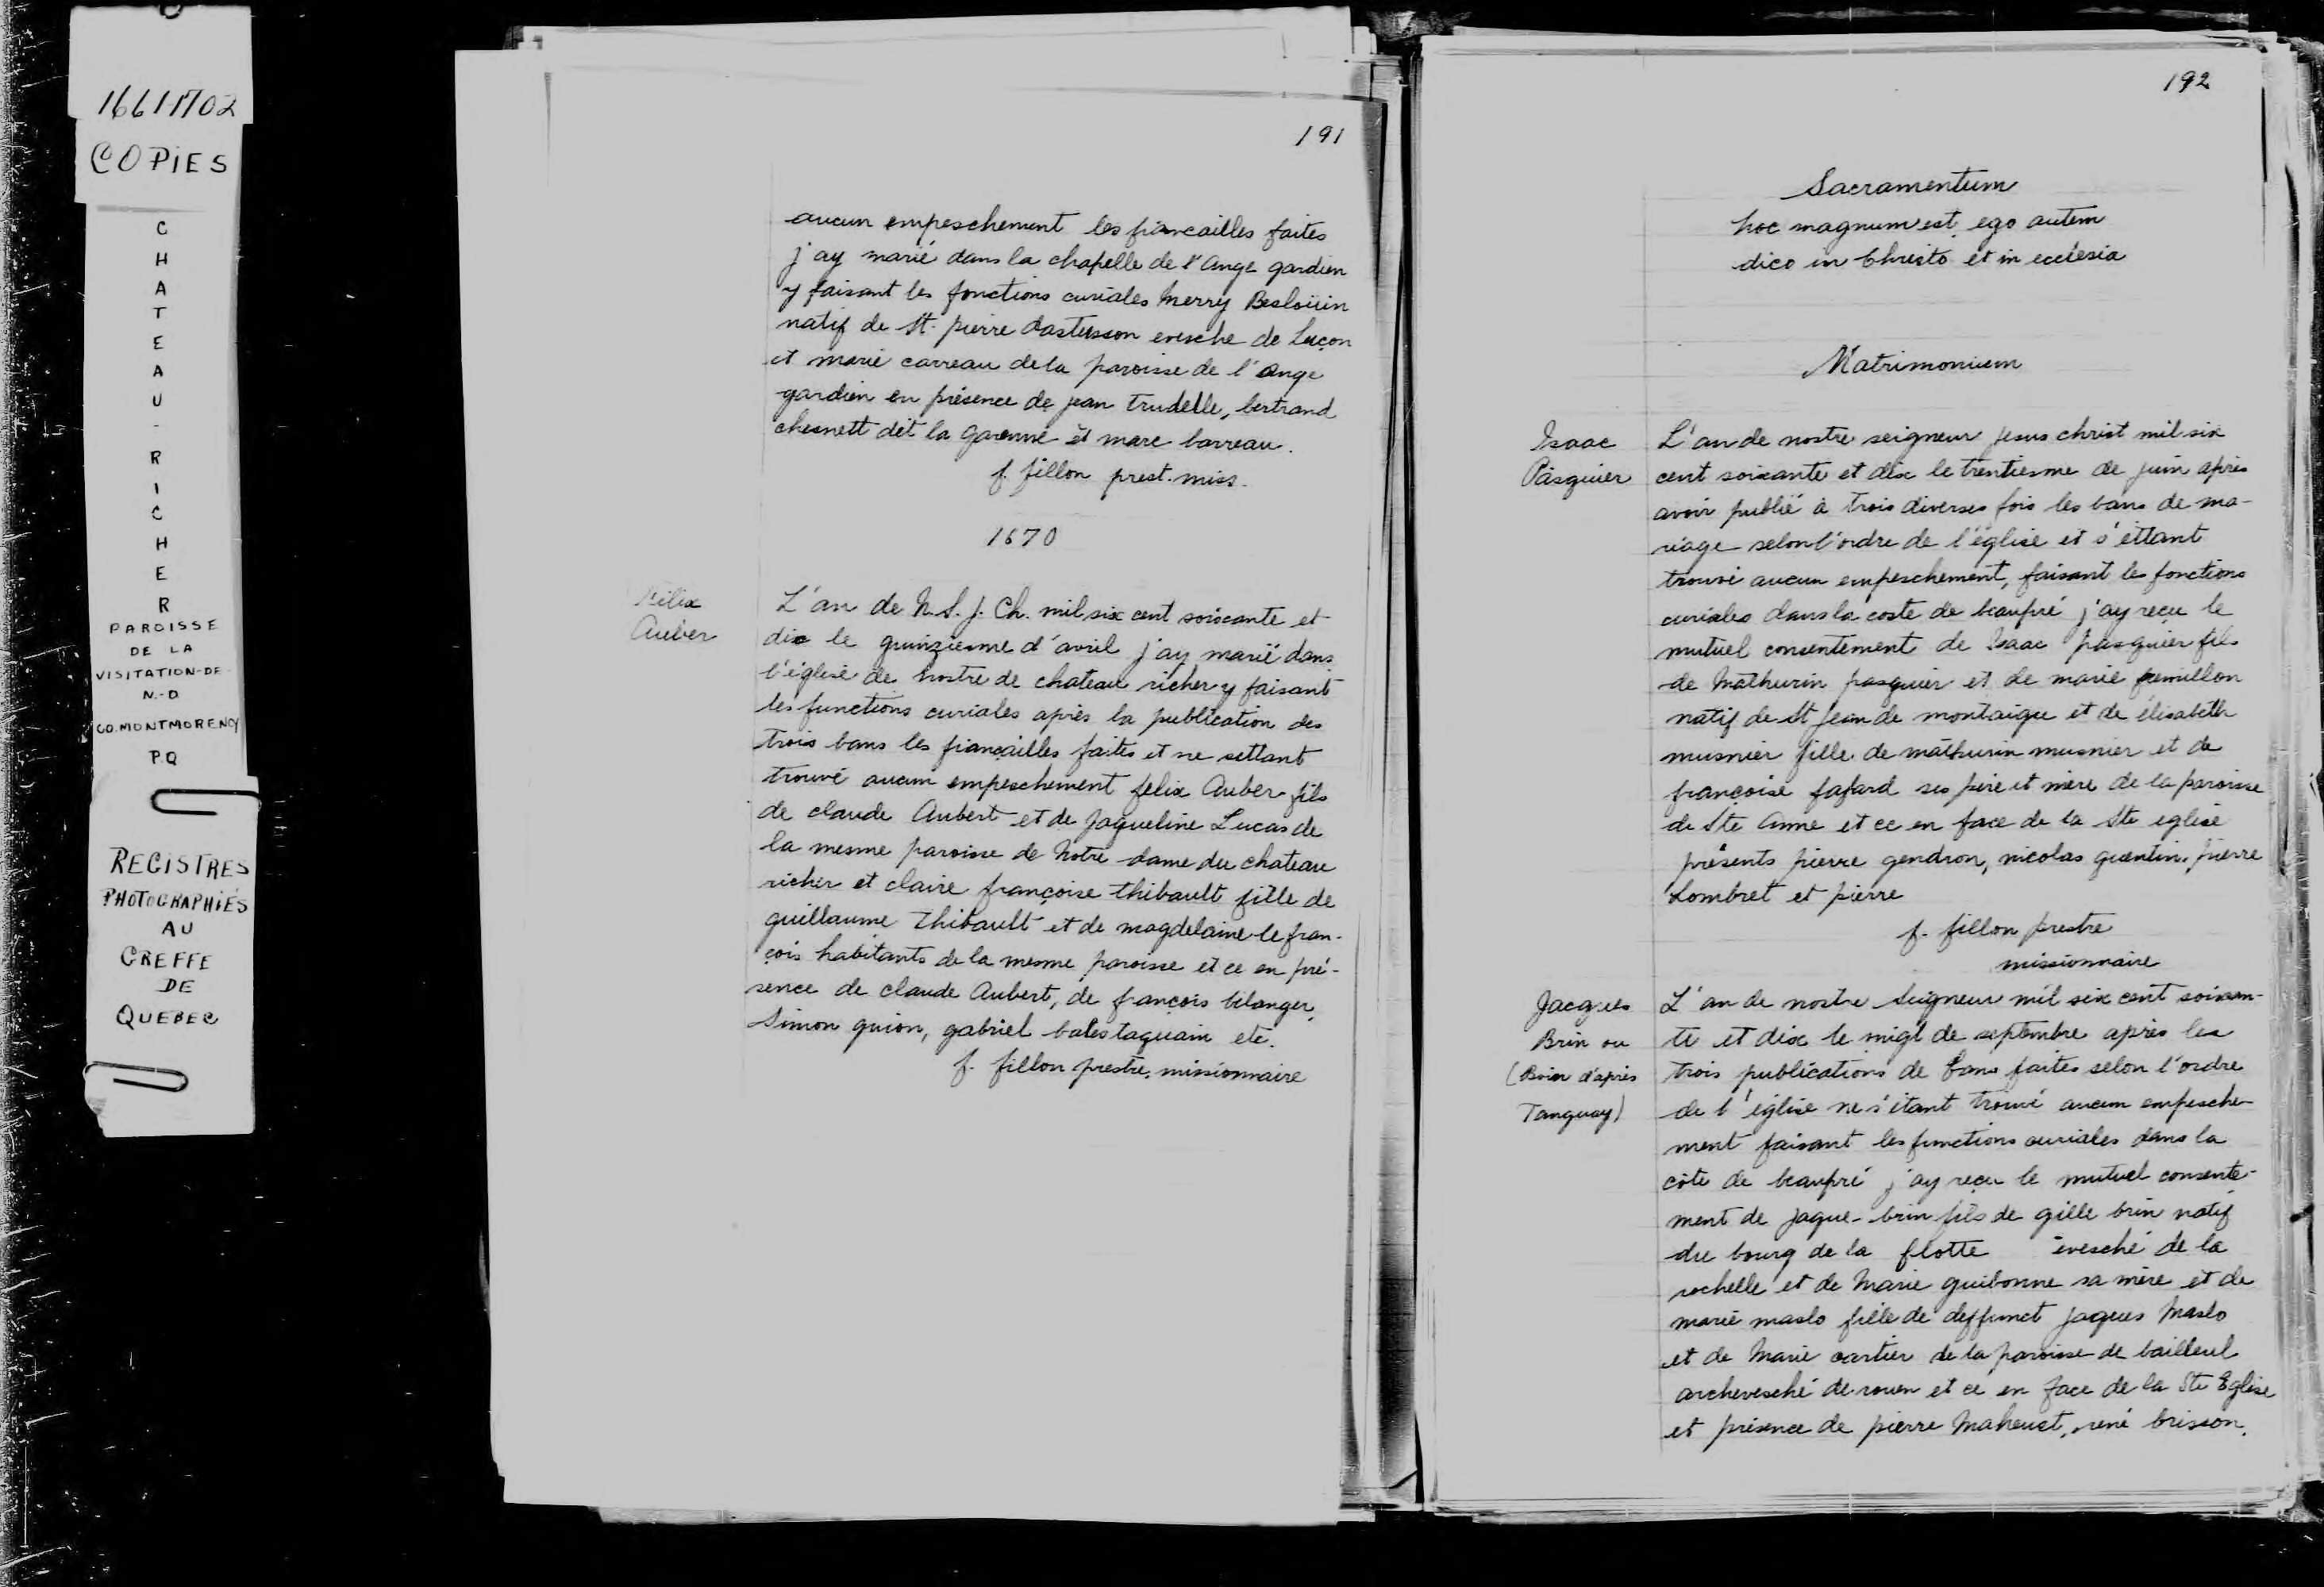 1661-1702
COPIES
CHATEAU-RICHER
PAROISSE
DE LA
VISITATION-DE
N.-D
CO. MONTMORENCY
P.Q
REGISTRES
PHOTOGRAPHIÉS
AU
GREFFE
DE
QUEBEC
191
aucun empeschement les fiancailles faites
j'ay marié dans la chapelle de l'ange gardien
y faisant les fonctions curiales Merry Besloüin
natif de St. pierre dastusson evesche de Luçon
et marie carreau de la paroisse de l'ange
gardien en présence de jean Trudelle, bertrand
chesnett dit la Garenne et marc barreau.
f. fillon prest. miss.
1670
Félix
Auber
L'an de N. S. J. Ch. mil six cent soixante et
dix le quinziesme d'avril j'ay marié dans
l'église de nostre de chateau richer y faisant
les functions curiales après la publication des
trois bans les fiançailles faites et ne settant
trouvé aucun empeschement felix Auber fils
de claude Aubert et de Jaqueline Lucas de
la mesme paroisse de Notre-dame du chateau
richer et claire françoise thibault fille de
guillaume Thibault et de magdelaine le fran-
çois habitants de la mesme paroisse et ce en pré-
sence de claude Aubert, de françois bélanger,
Simon guion, gabriel bates taquain etc.
f. fillon prestre, missionnaire
192
Sacramentum
hoc magnum est, ego autem
dico in Christo et in ecclesia
Matrimonium
Isaac
Pasquier
L'an de nostre seigneur Jesus christ mil six
cent soixante et dix le trentiesme de juin après
avoir publié à trois diverses fois les bans de ma-
riage selon l'ordre de l'église et s'éttant
trouvé aucun empeschement, faisant les fonctions
curiales dans la coste de beaupré j'ay reçu le
mutuel consentement de Isaac pasquier fils
de Mathurin pasquier et de marie fremillon
natif de St jean de montaigu et de élisabeth
musnier fille de mathurin musnier et de
françoise fafard ses père et mère de la paroisse
de Ste Anne et ce en face de la Ste eglise
présents pierre gendron, nicolas quentin, pierre
Lombret et pierre
f. fillon prestre
missionnaire
Jacques
Brin ou
(Boin d'après
Tanguay)
L'an de nostre Seigneur mil six cent soixan-
te et dix le migt de septembre après les
trois publications de bans faites selon l'ordre
de l'église ne s'étant trouvé aucun empesche-
ment faisant les functions curiales dans la
côte de beaupré j'ay reçu le mutuel consente-
ment de jaque-brin fils de gille brin natif
du bourg de la flotte évesché de la
rochelle et de Marie guibonne sa mère et de
marie maslo fille de deffunct jaques Maslo
et de Marie cartier de la paroisse de bailleul
archevesché de rouen et ce en face de la Ste Eglise
et présence de pierre Maheust, rené brisson,